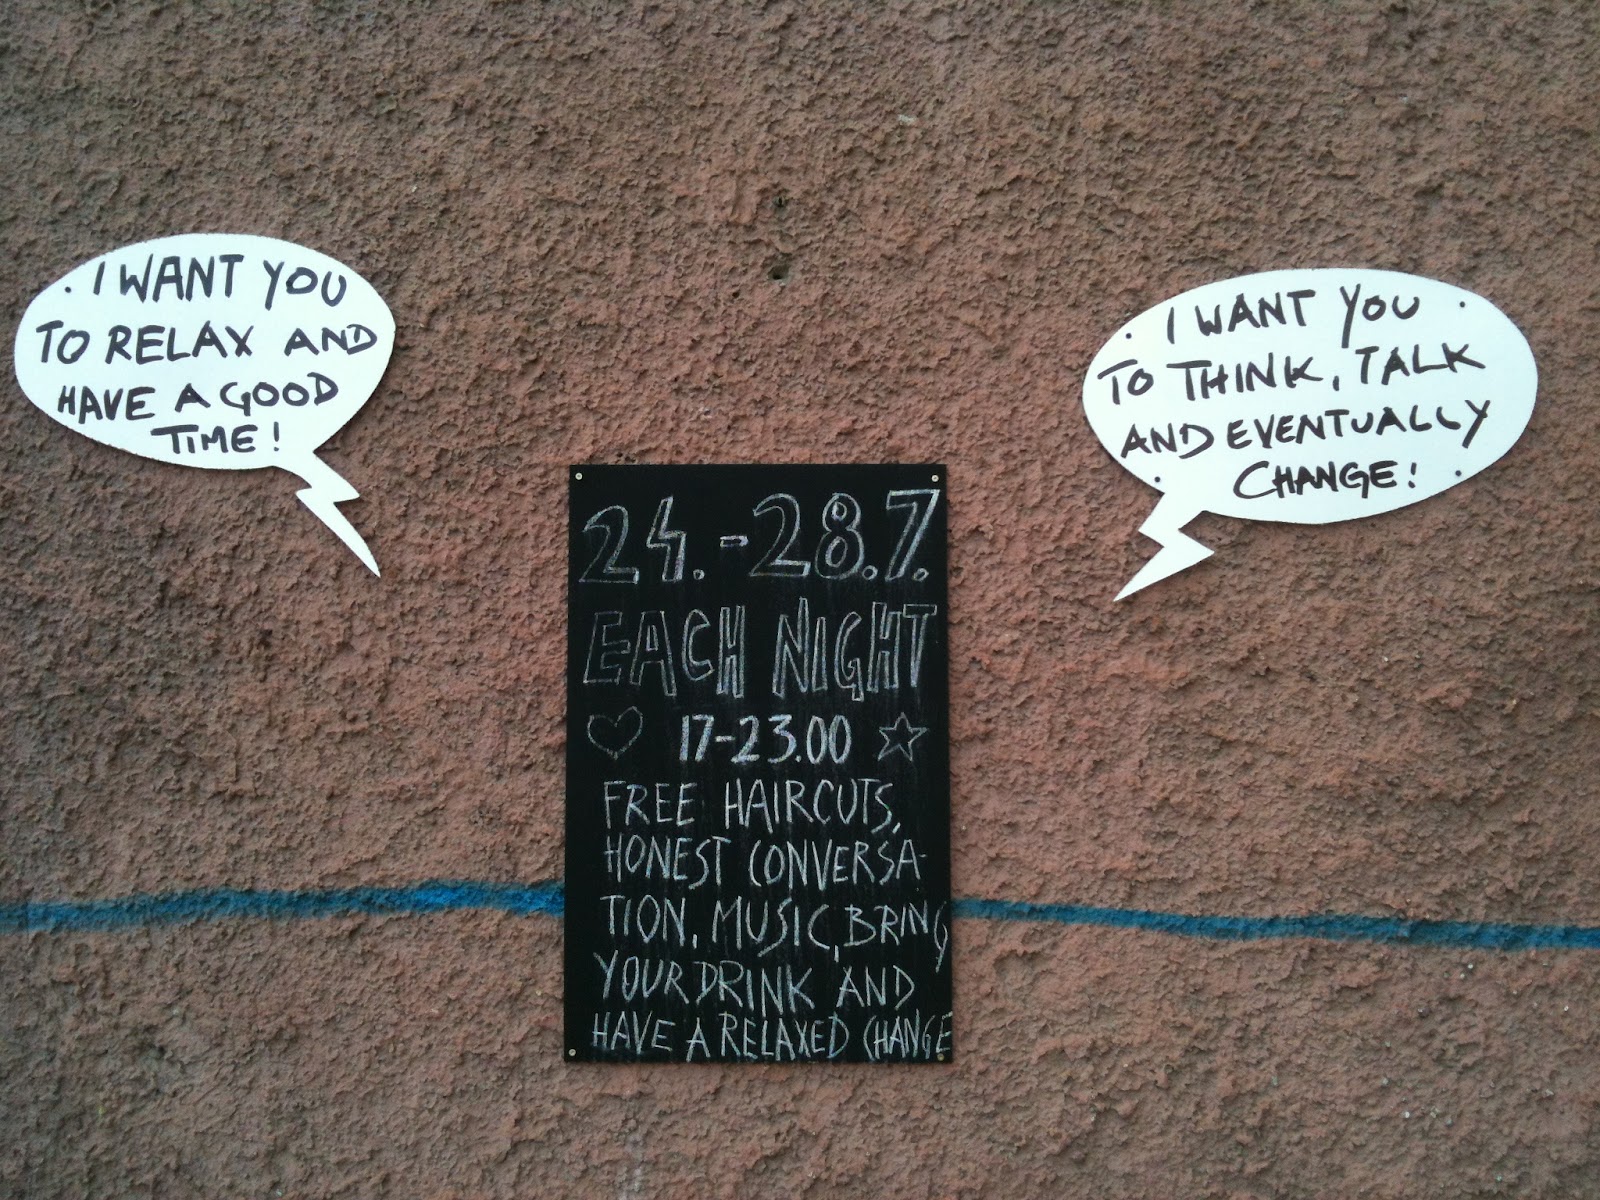 . I WANT YOU
TO RELAX AND
HAVE A GOOD
TIME!
. I WANT YOU .
TO THINK, TALK
AND EVENTUALLY
. CHANGE! .
24.-28.7.
EACH NIGHT
♡ 17-23.00 ☆
FREE HAIRCUTS,
HONEST CONVERSA-
TION, MUSIC, BRING
YOUR DRINK AND
HAVE A RELAXED CHANGE